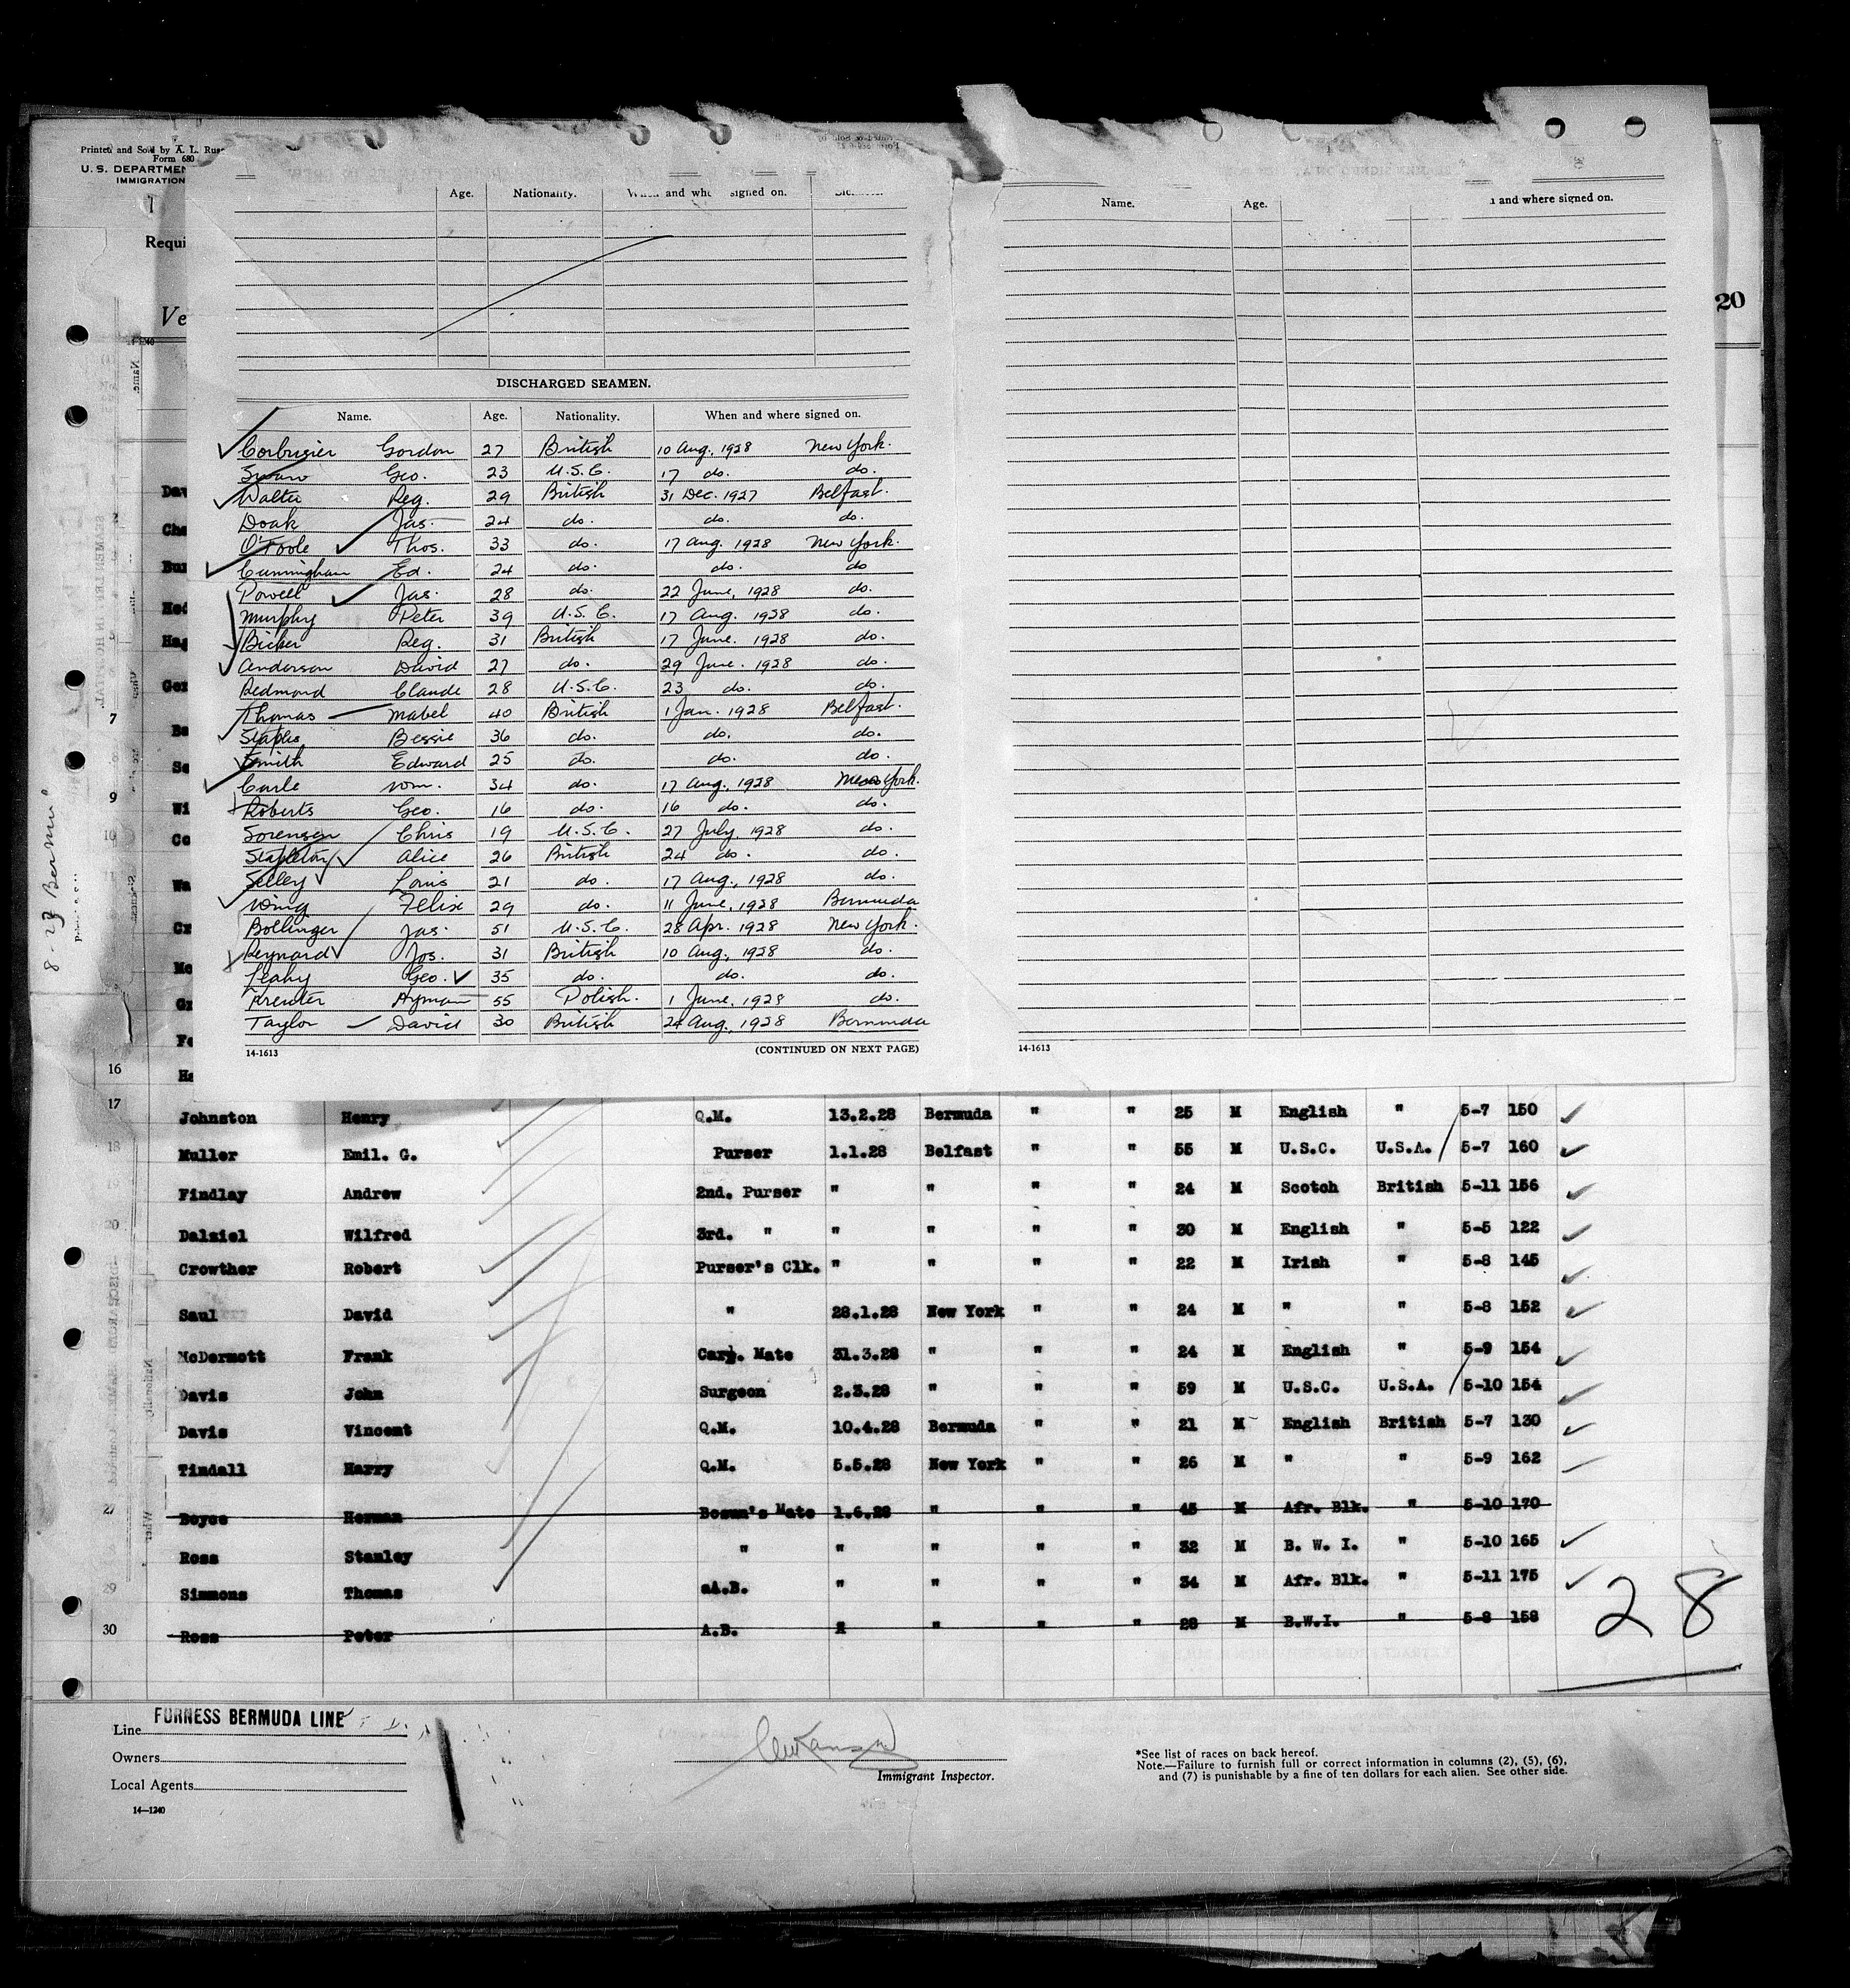 Printed and Sold by A. L. Rus
Form 680
U. S. DEPARTMEN
IMMIGRATION
Requi
Ve
20
Age. Nationality. and whe signed on.
Name. Age. and where signed on.
DISCHARGED SEAMEN.
Name. Age. Nationality. When and where signed on.
Corbusier Gordon 27 British 10 Aug. 1928 New York.
Geo. 23 U.S.C. 17 do. do.
Walter Reg. 29 British 31 Dec. 1927 Belfast.
Doak Jas. 24 do. do. do.
O'Toole Thos. 33 do. 17 Aug. 1928 New York.
Cunningham Ed. 24 do. do. do
Powell Jas. 28 do. 22 June, 1928 do.
Murphy Peter 39 U.S.C. 17 Aug. 1928 do.
Reg. 31 British 17 June. 1928 do.
Anderson David 27 do. 29 June. 1928 do.
Redmond Claude 28 U.S.C. 23 do. do.
Thomas Mabel 40 British 1 Jan. 1928 Belfast.
Staples Bessie 36 do. do. do.
Smith Edward 25 do. do. do.
Carle Wm. 34 do. 17 Aug, 1928 New York.
Roberts Geo. 16 do. 16 do. do.
Sorensen Chris 19 U.S.C. 27 July, 1928 do.
Stapleton Alice 26 British 24 do. do.
Selley Louis 21 do. 17 Aug., 1928 do.
Wing Felix 29 do. 11 June, 1928 Bermuda
Bollinger Jas. 51 U.S.C. 28 Apr. 1928 New York.
Reynard Jos. 31 British 10 Aug, 1928 do.
Leahy Geo. 35 do. do. do.
Kreuter Hyman 55 Polish. 1 June, 1928 do.
Taylor David 30 British 24 Aug., 1928 Bermuda
14-1613 (CONTINUED ON NEXT PAGE)
14-1613
7
9
10
16
17 Johnston Henry Q.M. 13.2.28 Bermuda " " 25 M English " 5-7 150
18 Muller Emil. G. Purser 1.1.28 Belfast " " 55 M U.S.C. U.S.A. 5-7 160
Findlay Andrew 2nd. Purser " " " " 24 M Scotch British 5-11 156
20 Dalziel Wilfred 3rd. " " " " " 30 M English " 5-5 122
Crowther Robert Purser's Clk. " " " " 22 M Irish " 5-8 145
Saul David " 28.1.28 New York " " 24 M " " 5-8 152
McDermott Frank Carp. Mate 31.3.28 " " " 24 M English " 5-9 154
Davis John Surgeon 2.3.28 " " " 59 M U.S.C. U.S.A. 5-10 154
Davis Vincent Q.M. 10.4.28 Bermuda " " 21 M English British 5-7 130
Tindall Harry Q.M. 5.5.28 New York " " 26 M " " 5-9 162
27 Boyce Herman Bosun's Mate 1.6.28 " " " 45 M Afr. Blk. " 5-10 170
Ross Stanley " " " " " 32 M B. W. I. " 5-10 165
29 Simmons Thomas aA.B. " " " " 34 M Afr. Blk. " 5-11 175
30 Ross Peter A.B. " " " " 28 M B.W.I. " 5-8 158
28
Line FURNESS BERMUDA LINE
Owners
Local Agents
14—1240
Immigrant Inspector.
*See list of races on back hereof.
Note.—Failure to furnish full or correct information in columns (2), (5), (6),
and (7) is punishable by a fine of ten dollars for each alien. See other side.